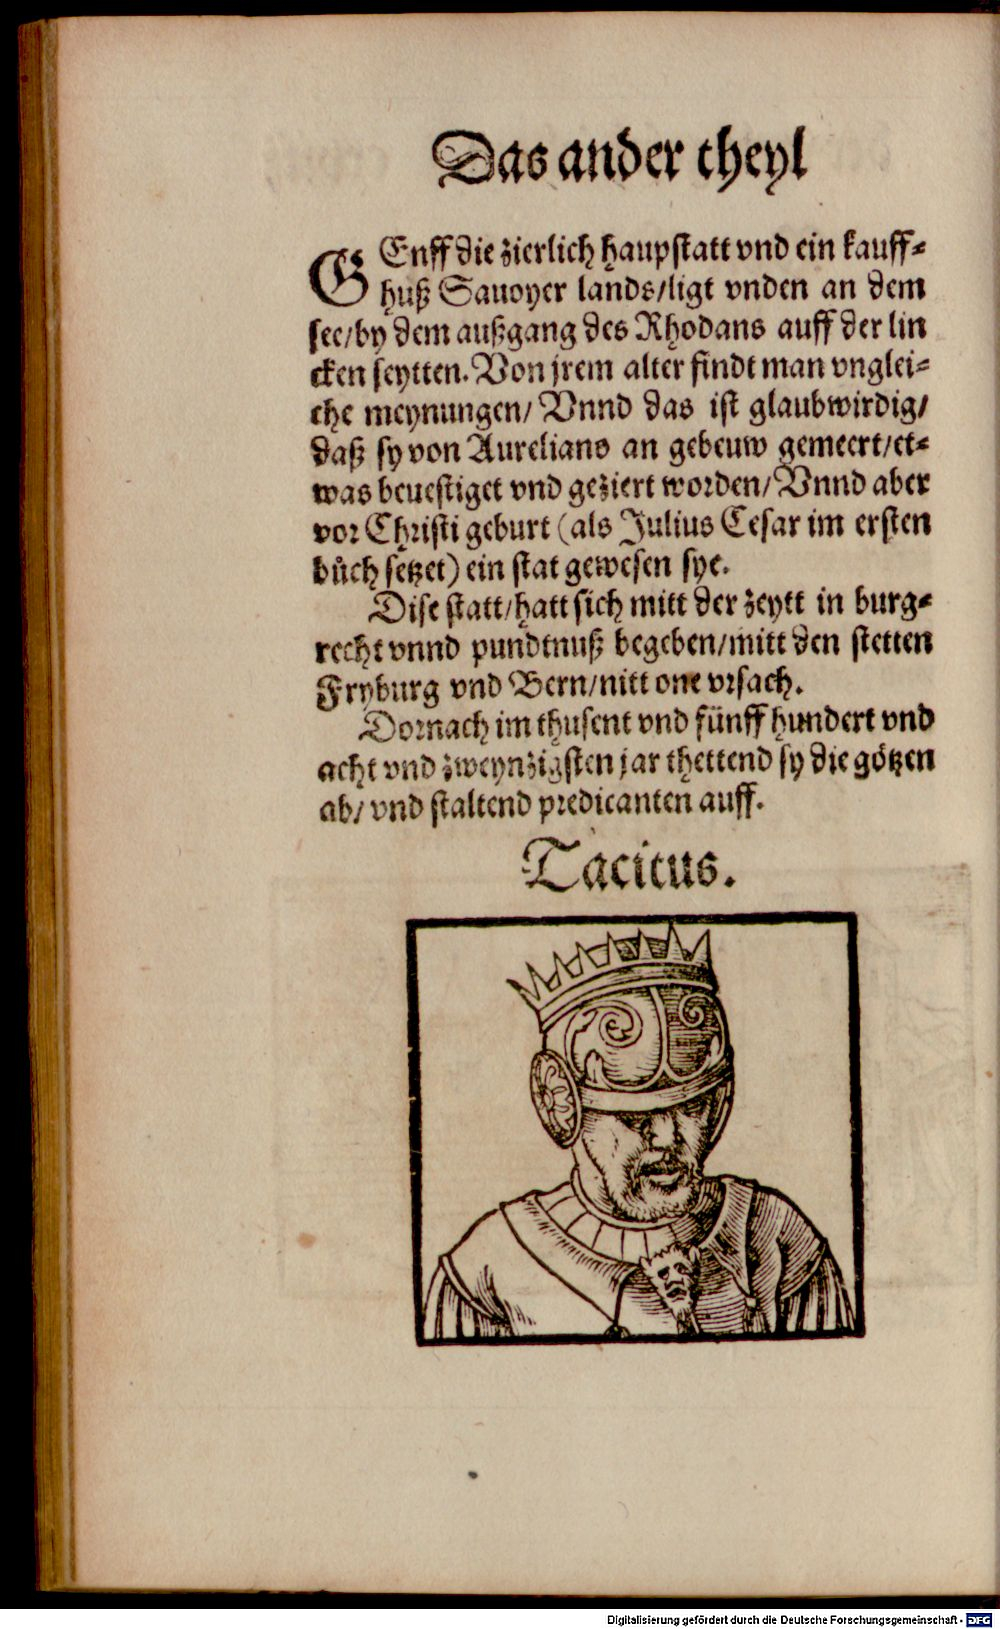 Das ander theyl
GEnff die zierlich haupstatt vnd ein kauff⸗
huß Sauoyer lands/ligt vnden an dem
see/by dem außgang des Rhodans auff der lin
cken seytten. Von jrem alter findt man vnglei⸗
che meynungen/ Vnnd das ist glaubwirdig/
daß sy von Aureliano an gebeuw gemeert/et⸗
was beuestiget vnd geziert worden/ Vnnd aber
vor Christi geburt (als Julius Cesar im ersten
bůch setzet) ein stat gewesen sye.
Dise statt/hatt sich mitt der zeytt in burg⸗
recht vnnd pundtnuß begeben/mitt den stetten
Fryburg vnd Bern/nitt one vrsach.
Dornach im thusent vnd fünff hundert vnd
acht vnd zweynzigsten jar thettend sy die götzen
ab/ vnd staltend predicanten auff.
Tacitus.
Digitalisierung gefördert durch die Deutsche Forschungsgemeinschaft - DFG